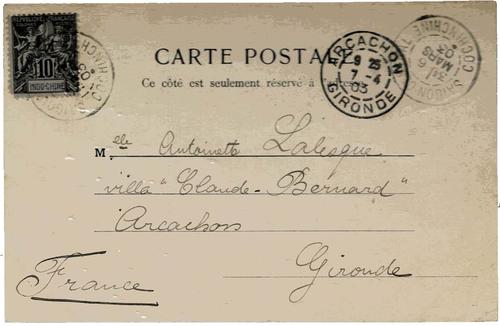 RÉPUBLIQUE FRANÇAISE
10
INDO-CHINE
CARTE POSTALE
Ce côté est seulement réservé à l'adresse
ARCACHON
9 25
7 -4
03
GIRONDE
SAIGON
COCHINCHINE
1
MARS
03
Mlle Antoinette Lalesque
villa "Claude-Bernard"
Arcachon
Gironde
France